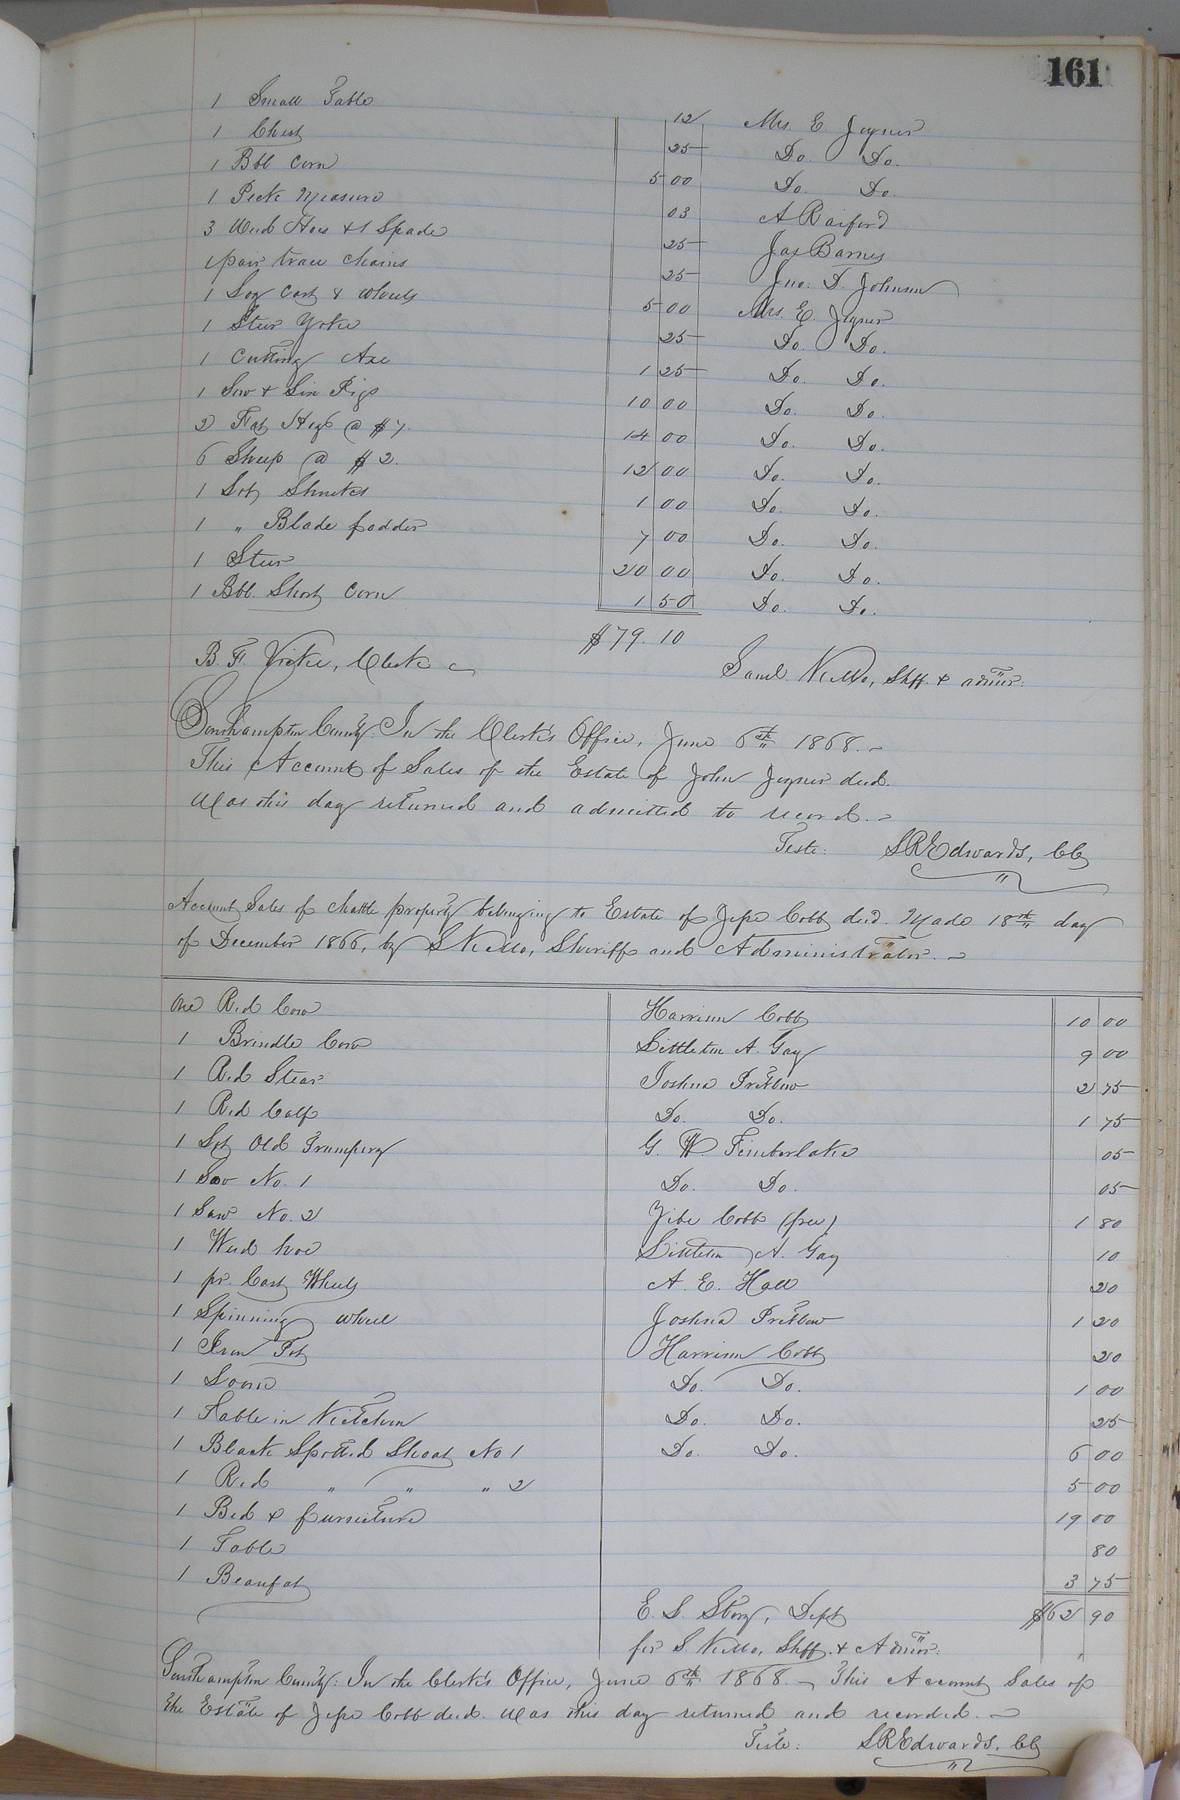 161
1 Small Table 12 Mrs. E Joyner
1 Chest 25 Do. Do.
1 Bbl Corn 5 00 Do. Do.
1 Peck Measure 03 A Raiford
3 Weed Hoes & 1 Spade 25 Jas Barnes
1 pair trace chains 25 Jno. D. Johnson
1 Log Cart & wheels 5 00 Mrs. E. Joyner
1 Steer Yoke 25 Do. Do.
1 Cutting Axe 1 25 Do. Do.
1 Sow & Six Pigs 10 00 Do. Do.
2 Fat Hogs @ $7. 14 00 Do. Do.
6 Sheep @ $2. 12 00 Do. Do.
1 Lot Shucks 1 00 Do. Do.
1 " Blade fodder 7 00 Do. Do.
1 Steer 20 00 Do. Do.
1 Bbl. Short Corn 1 50 Do. Do.
$79. 10
B. F. Clerk Saml. Kello, Shff. & admor.
Southampton County: In the Clerk's Office, June 6th 1868.
This Account of Sales of the Estate of John Joyner decd.
was this day returned and admitted to record.
Teste: S R Edwards, CC
Account Sales of chattle property belonging to Estate of Jepe Cobb decd. Made 18th day
of December 1866, by S Kello, Sheriff and Administrator.
One Red Cow Harrison Cobb 10 00
1 Brindle Cow Littleton A. Gay 9 00
1 Red Stear Joshua Pretlow 2 75
1 Red Calf Do. Do. 1 75
1 Lot Old Trumpery G. W. Timberlake 05
1 Saw No. 1 Do. Do. 05
1 Saw No. 2 Zibe Cobb (free) 1 80
1 Weed hoe Littleton A. Gay 10
1 pr. Cart Wheels A. E. Hall 20
1 Spinning wheel Joshua Pretlow 1 20
1 Iron Pot Harrison Cobb 20
1 Loom Do. Do. 1 00
1 Table in Kitchen Do. Do. 25
1 Black Spotted Shoat No 1 Do. Do. 6 00
1 Red " " " 2 5 00
1 Bed & furniture 19 00
1 Table 80
1 Beaufat 3 75
E. S. Story, Dept $62 90
for S. Kello, Shff. & Admor.
Southampton County: In the Clerk's Office, June 6th 1868. This Account Sales of
the Estate of Jepe Cobb decd. was this day returned and recorded.
Teste: S R Edwards, CC